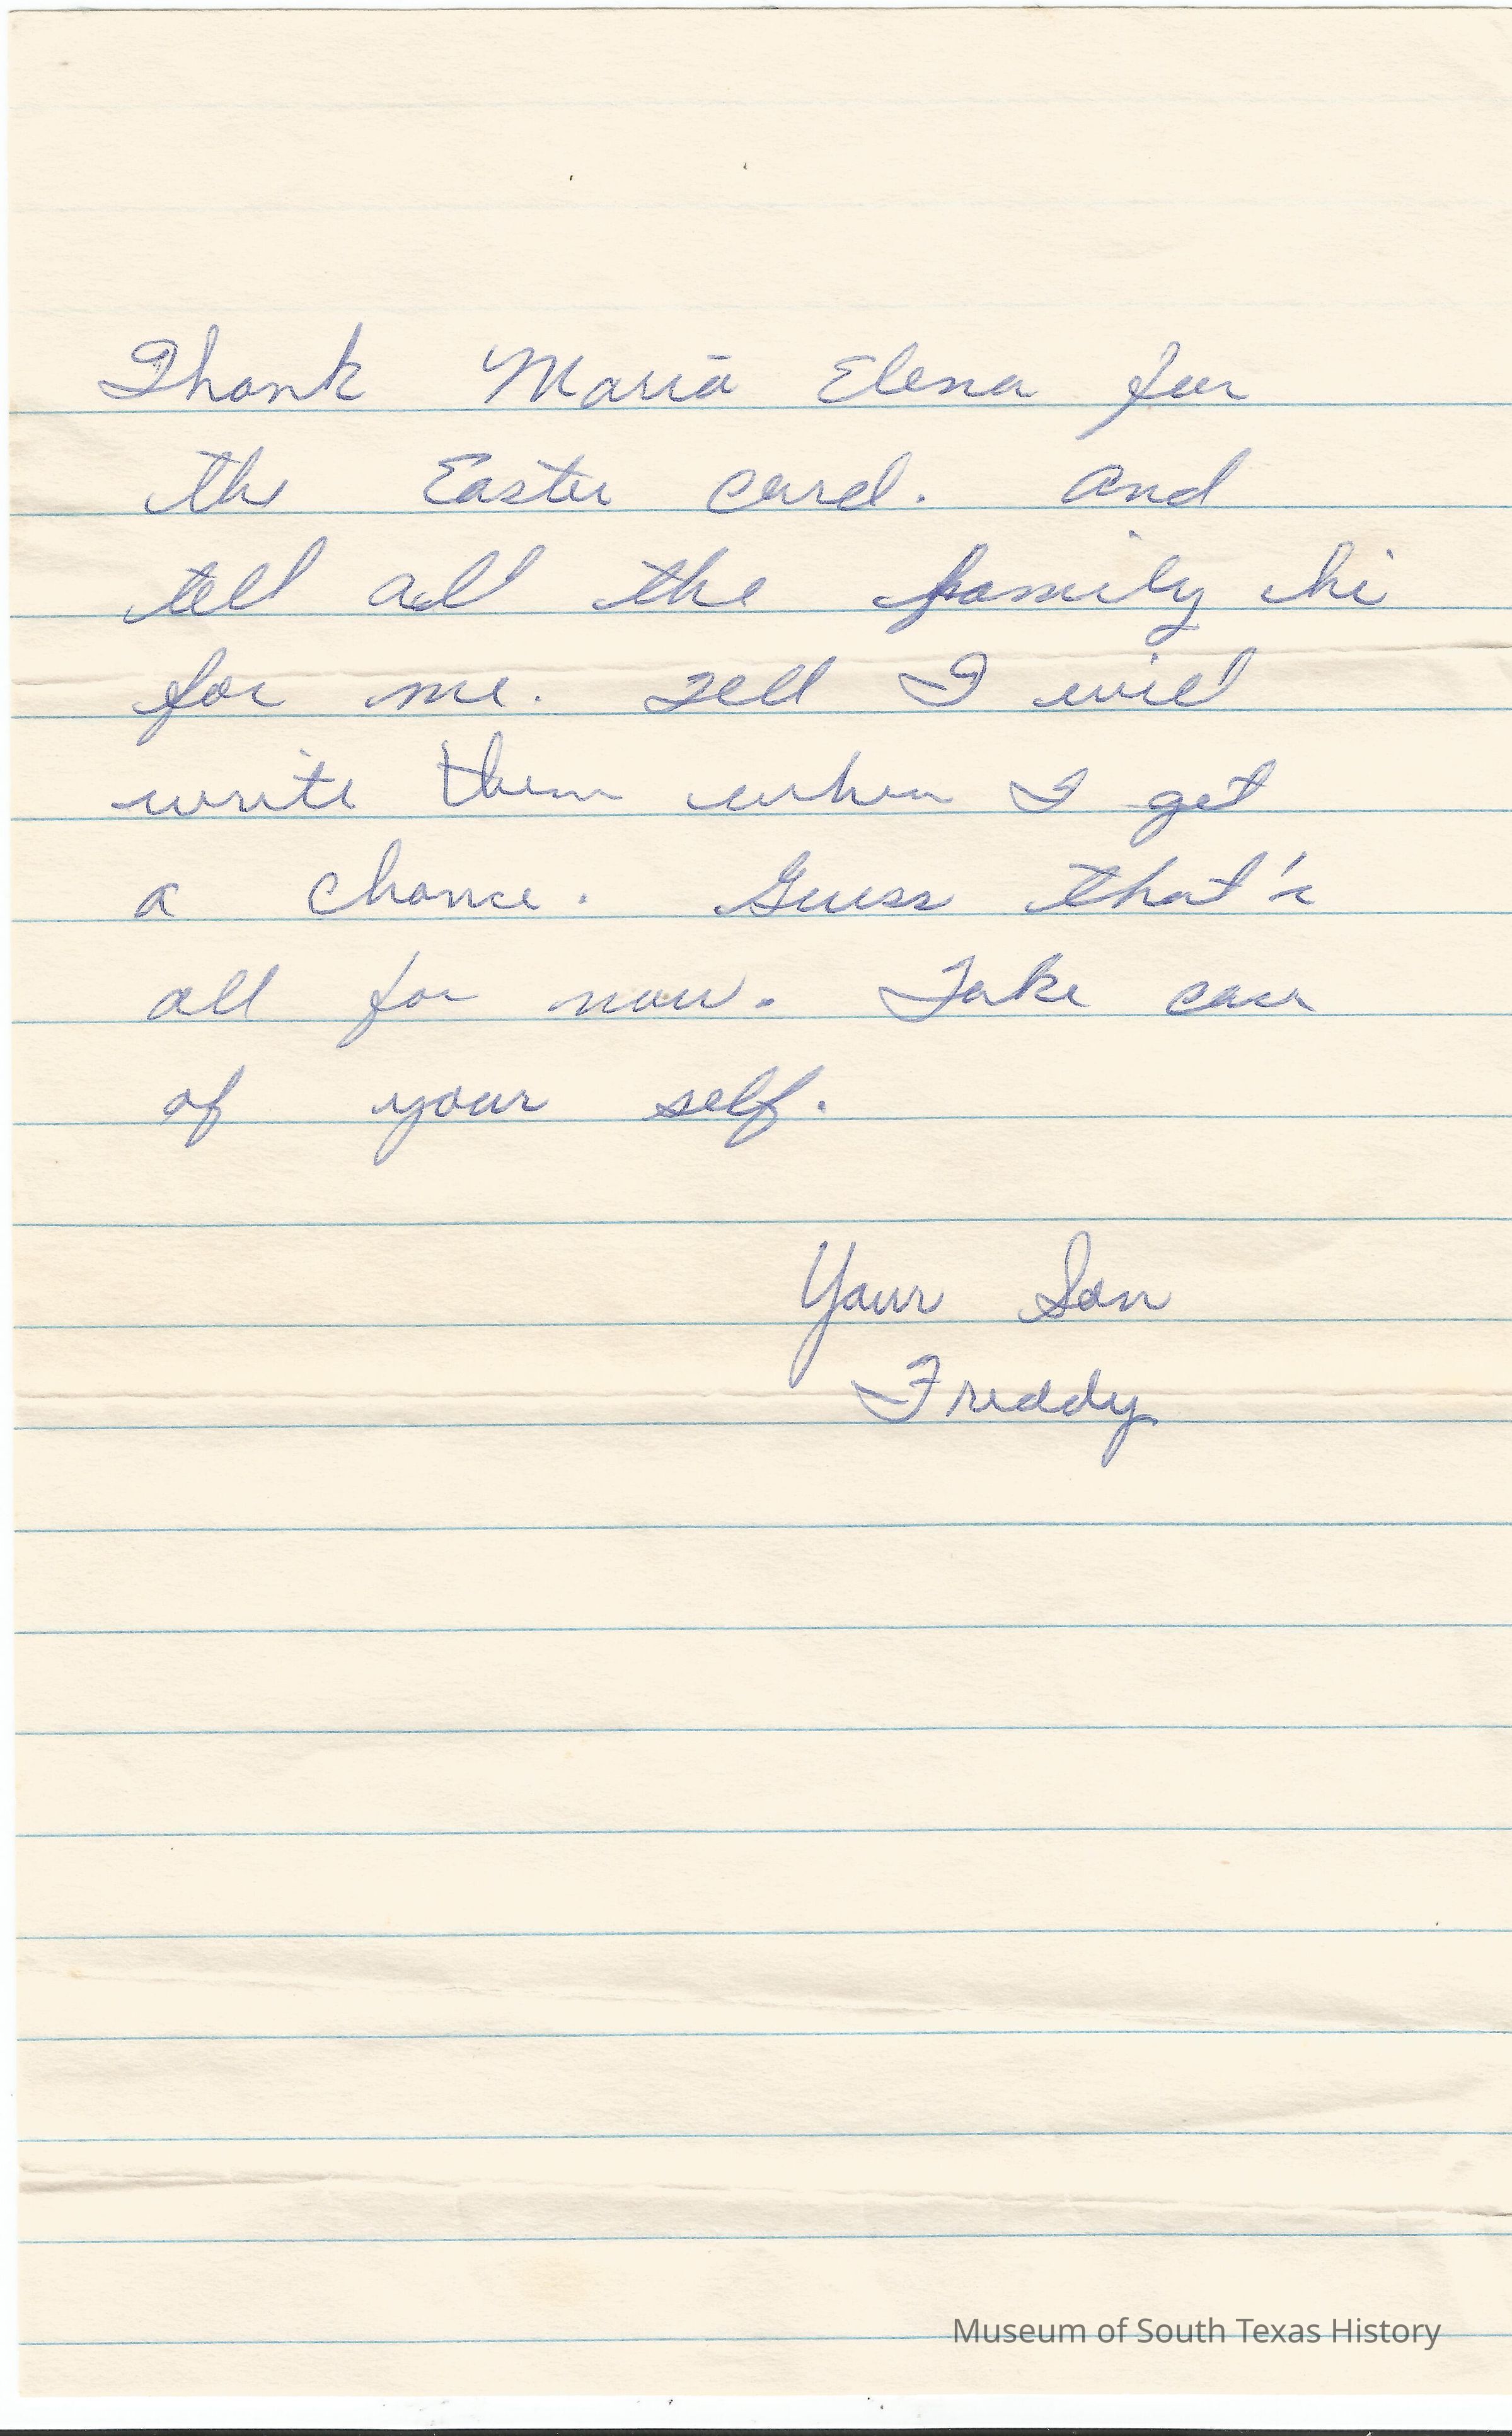 Thank Maria Elena for
the Easter card. and
tell all the family hi
for me. Tell I will
write them when I get
a chance. Guess that's
all for now. Take care
of your self.
Your Son
Freddy
Museum of South Texas History